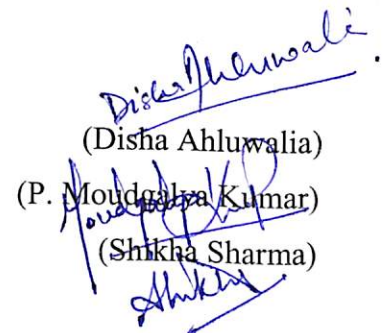 Disha Ahluwalia
(Disha Ahluwalia)
(P. Moudgalya Kumar)
(Shikha Sharma)
Shikha